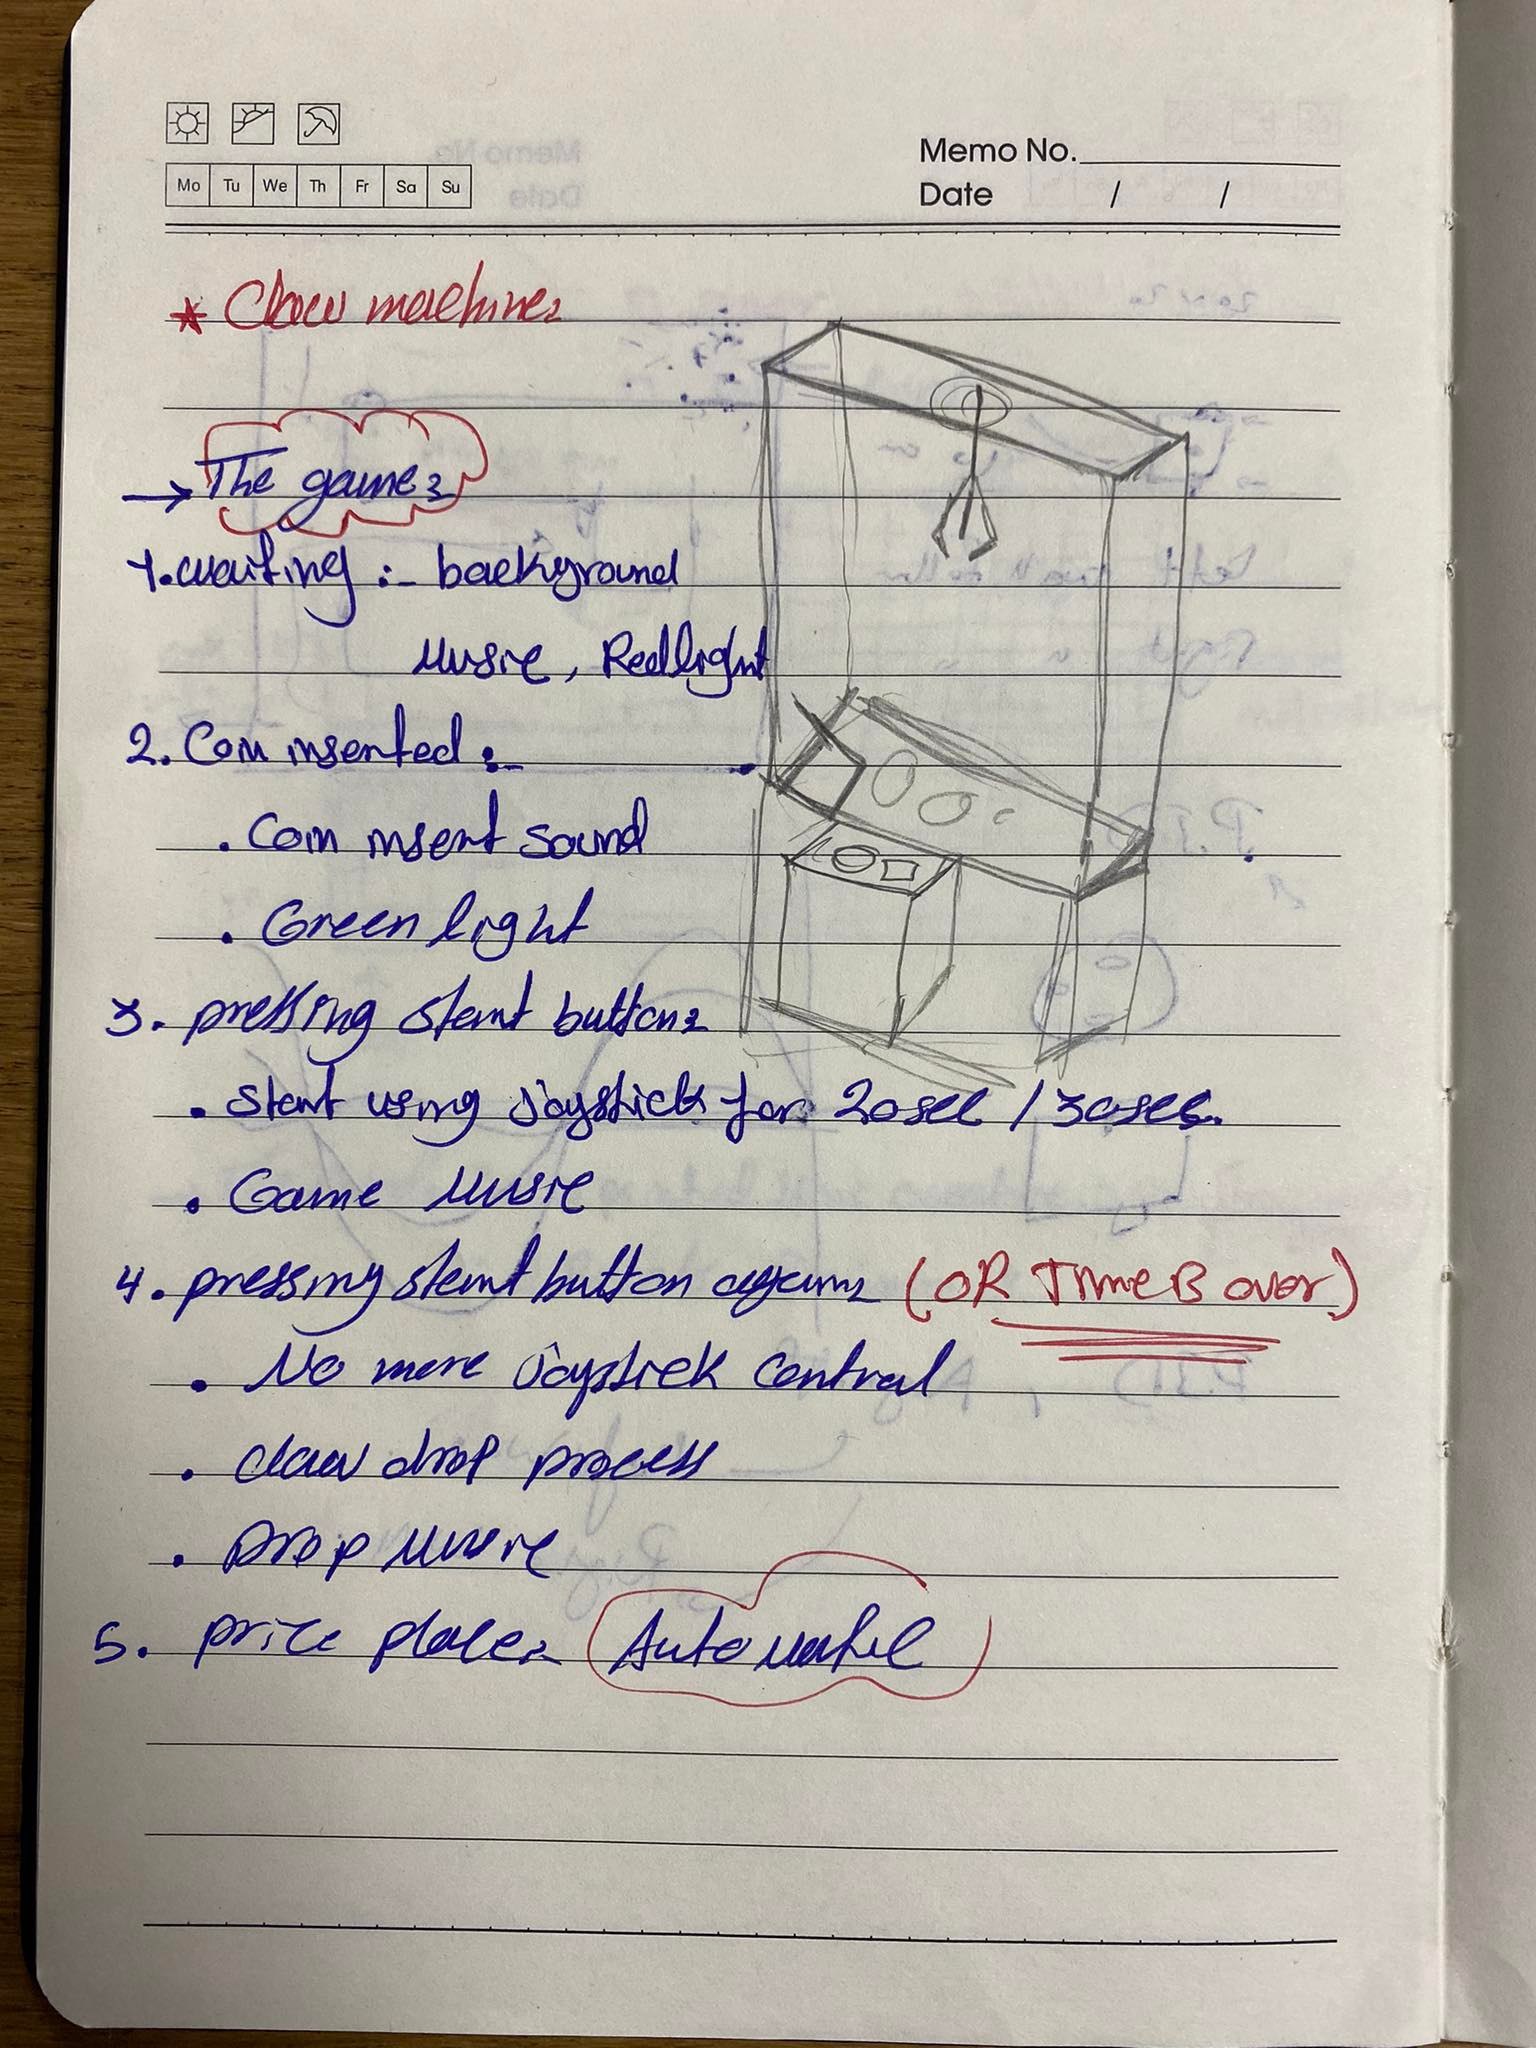 Mo Tu We Th Fr Sa Su
Memo No.
Date / /
* Claw machine:
→ The game:
1. waiting :- background
Music, Red light
2. Coin inserted :-
. Coin insert sound
. Green light
3. pressing start button:
. start using Joystick for 20sec / 30sec.
. Game Music
4. pressing start button again: (OR TIME IS over)
. No more Joystick control
. claw drop process
. Drop Music
5. price place: Automatic